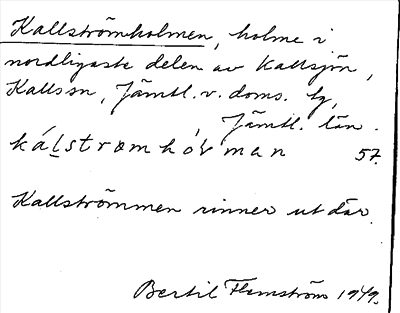 Kallströmholmen, holme i
nordligaste delen av Kallsjön,
Kalls sn, Jämtl. v. doms. lg,
Jämtl. län.
57.
Kallströmmen rinner ut där.
Bertil Flemström 1949.